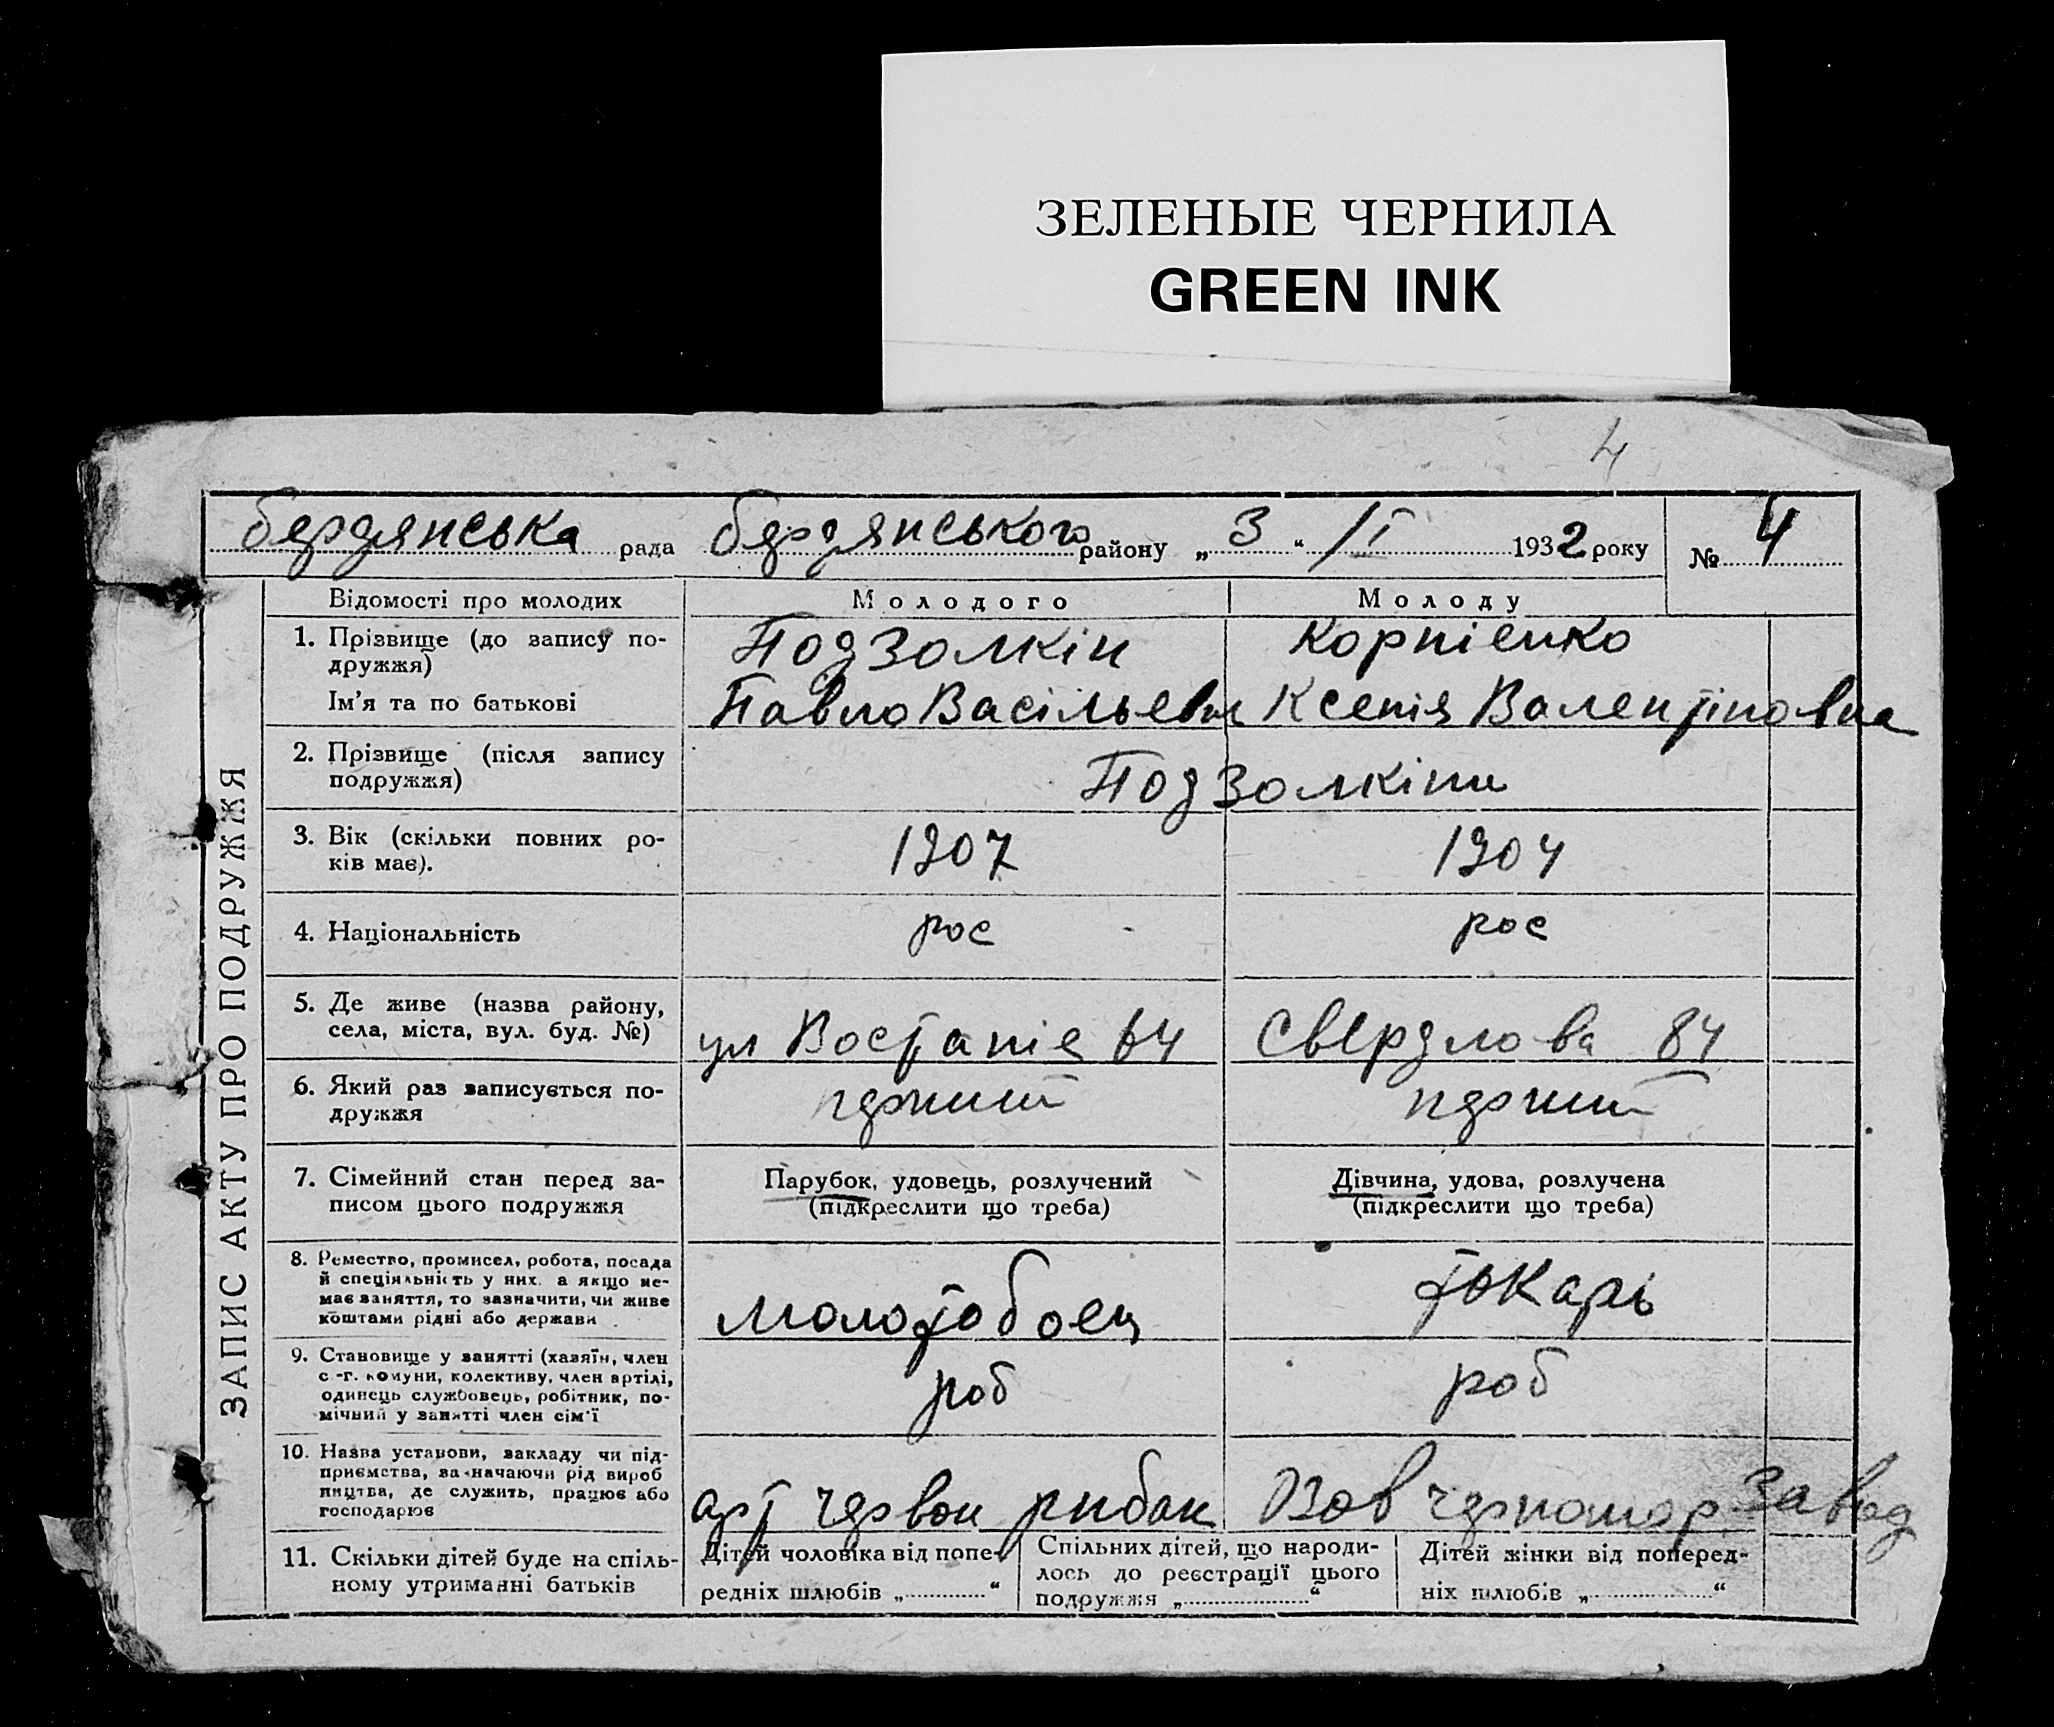 ЗЕЛЕНЫЕ ЧЕРНИЛА
GREEN INK
4
бердянська рада бердянського району „ 3 “ /I 1932 року № 4
ЗАПИС АКТУ ПРО ПОДРУЖЖЯ
Відомості про молодих
Молодого
Молоду
1. Прізвище (до запису по-
дружжя)
Ім'я та по батькові
Подзолкін
Корнієнко
Павло Васільевич
Ксенія Валентіновна
2. Прізвище (після запису
подружжя)
Подзолкіни
3. Вік (скільки повних ро-
ків має).
1907
1904
4. Національність
рос
рос
5. Де живе (назва району,
села, міста, вул. буд. №)
ул Востанія 64
Свердлова 84
6. Який раз записується по-
дружжя
перший
перший
7. Сімейний стан перед за-
писом цього подружжя
Парубок, удовець, розлучений
(підкреслити що треба)
Дівчина, удова, розлучена
(підкреслити що треба)
8. Ремество, промисел, робота, посада
й спеціяльність у них, а якщо не-
має заняття, то зазначити, чи живе
коштами рідні або держави
молотобоец
токарь
9. Становище у занятті (хазяїн, член
с.-г. комуни, колективу, член артілі,
одинець службовець, робітник, по-
мічний у занятті член сім'ї
роб
роб
10. Назва установи, закладу чи під-
приємства, зазначаючи рід вироб
ництва, де служить, працює або
господарює
арт червон рибак
Азов черномор завод
11. Скільки дітей буде на спіль-
ному утриманні батьків
Дітей чоловіка від попе-
редніх шлюбів „ “
Спільних дітей, що народи-
лось до реєстрації цього
подружжя „ “
Дітей жінки від поперед-
ніх шлюбів „ “